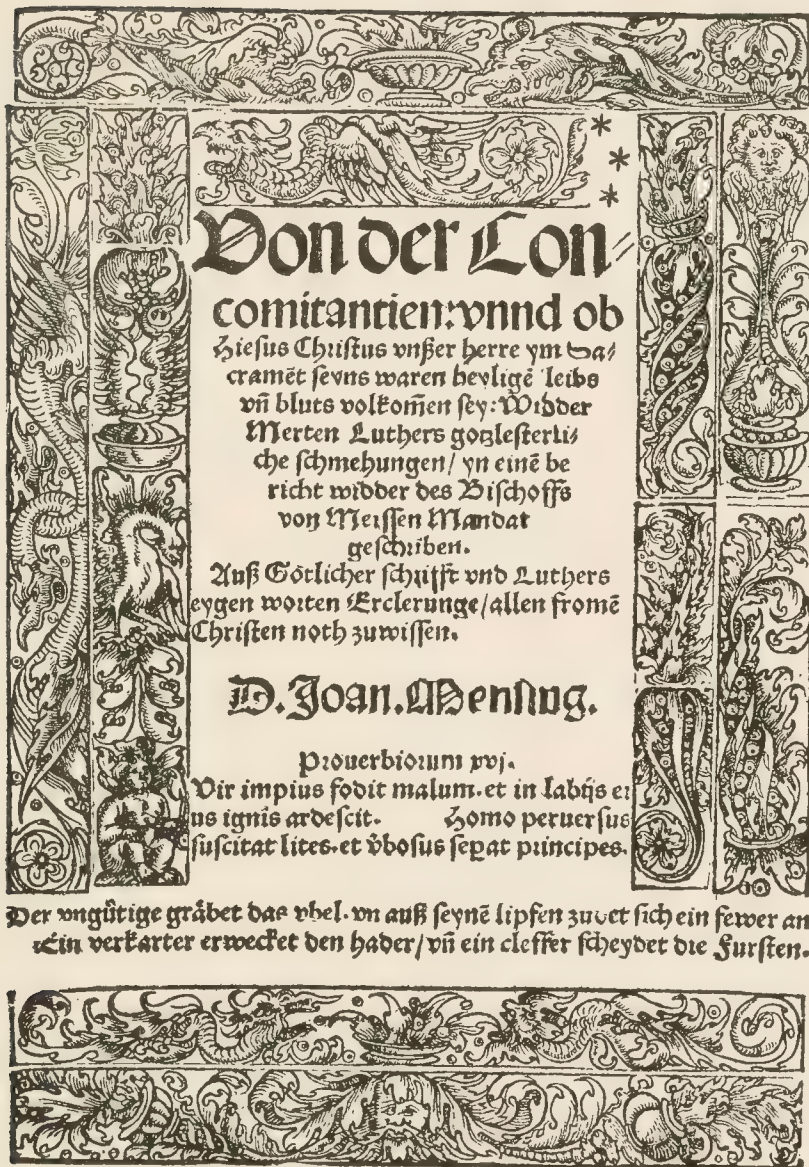 Von der Con⸗
comitantien: vnnd ob
Hiesus Christus vnßer herre ym Sa⸗
cramēt seyns waren heyligē leibs
vn̄ bluts volkom̄en sey: Widder
Merten Luthers gotzlesterli⸗
che schmehungen/ yn einē be
richt widder des Bischoffs
von Meissen Mandat
geschriben.
Auß Götlicher schrifft vnd Luthers
eygen worten Erclerunge/ allen fromē
Christen noth zuwissen.
D. Joan. Mensing.
Prouerbiorum xvj.
Vir impius fodit malum. et in labijs ei
us ignis ardescit. Homo peruersus
suscitat lites. et v̄bosus sepat principes.
Der vngütige gräbet das vbel. vn auß seynē lipsen zuvet sich ein fewer an
Ein verkarter erwecket den hader/ vn̄ ein cleffer scheydet die Fursten.